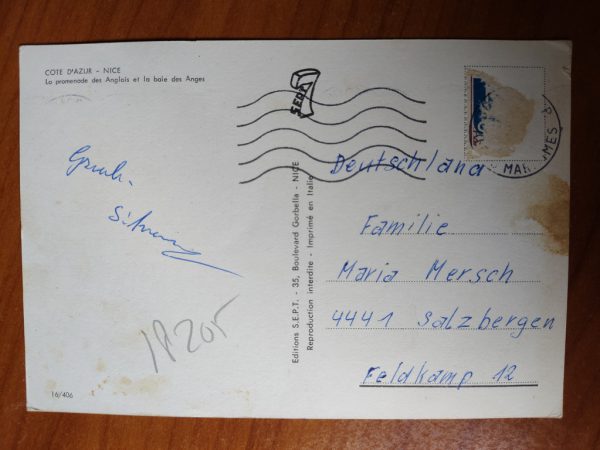 COTE D'AZUR - NICE
La promenade des Anglais et la baie des Anges
SEPT
MAR
MES
Deutschland
Familie
Maria Mersch
4441 Salzbergen
Feldkamp 12
Editions S.E.P.T. - 35, Boulevard Gorbella - NICE
Reproduction interdite - Imprimé en Italie
18205
16/406